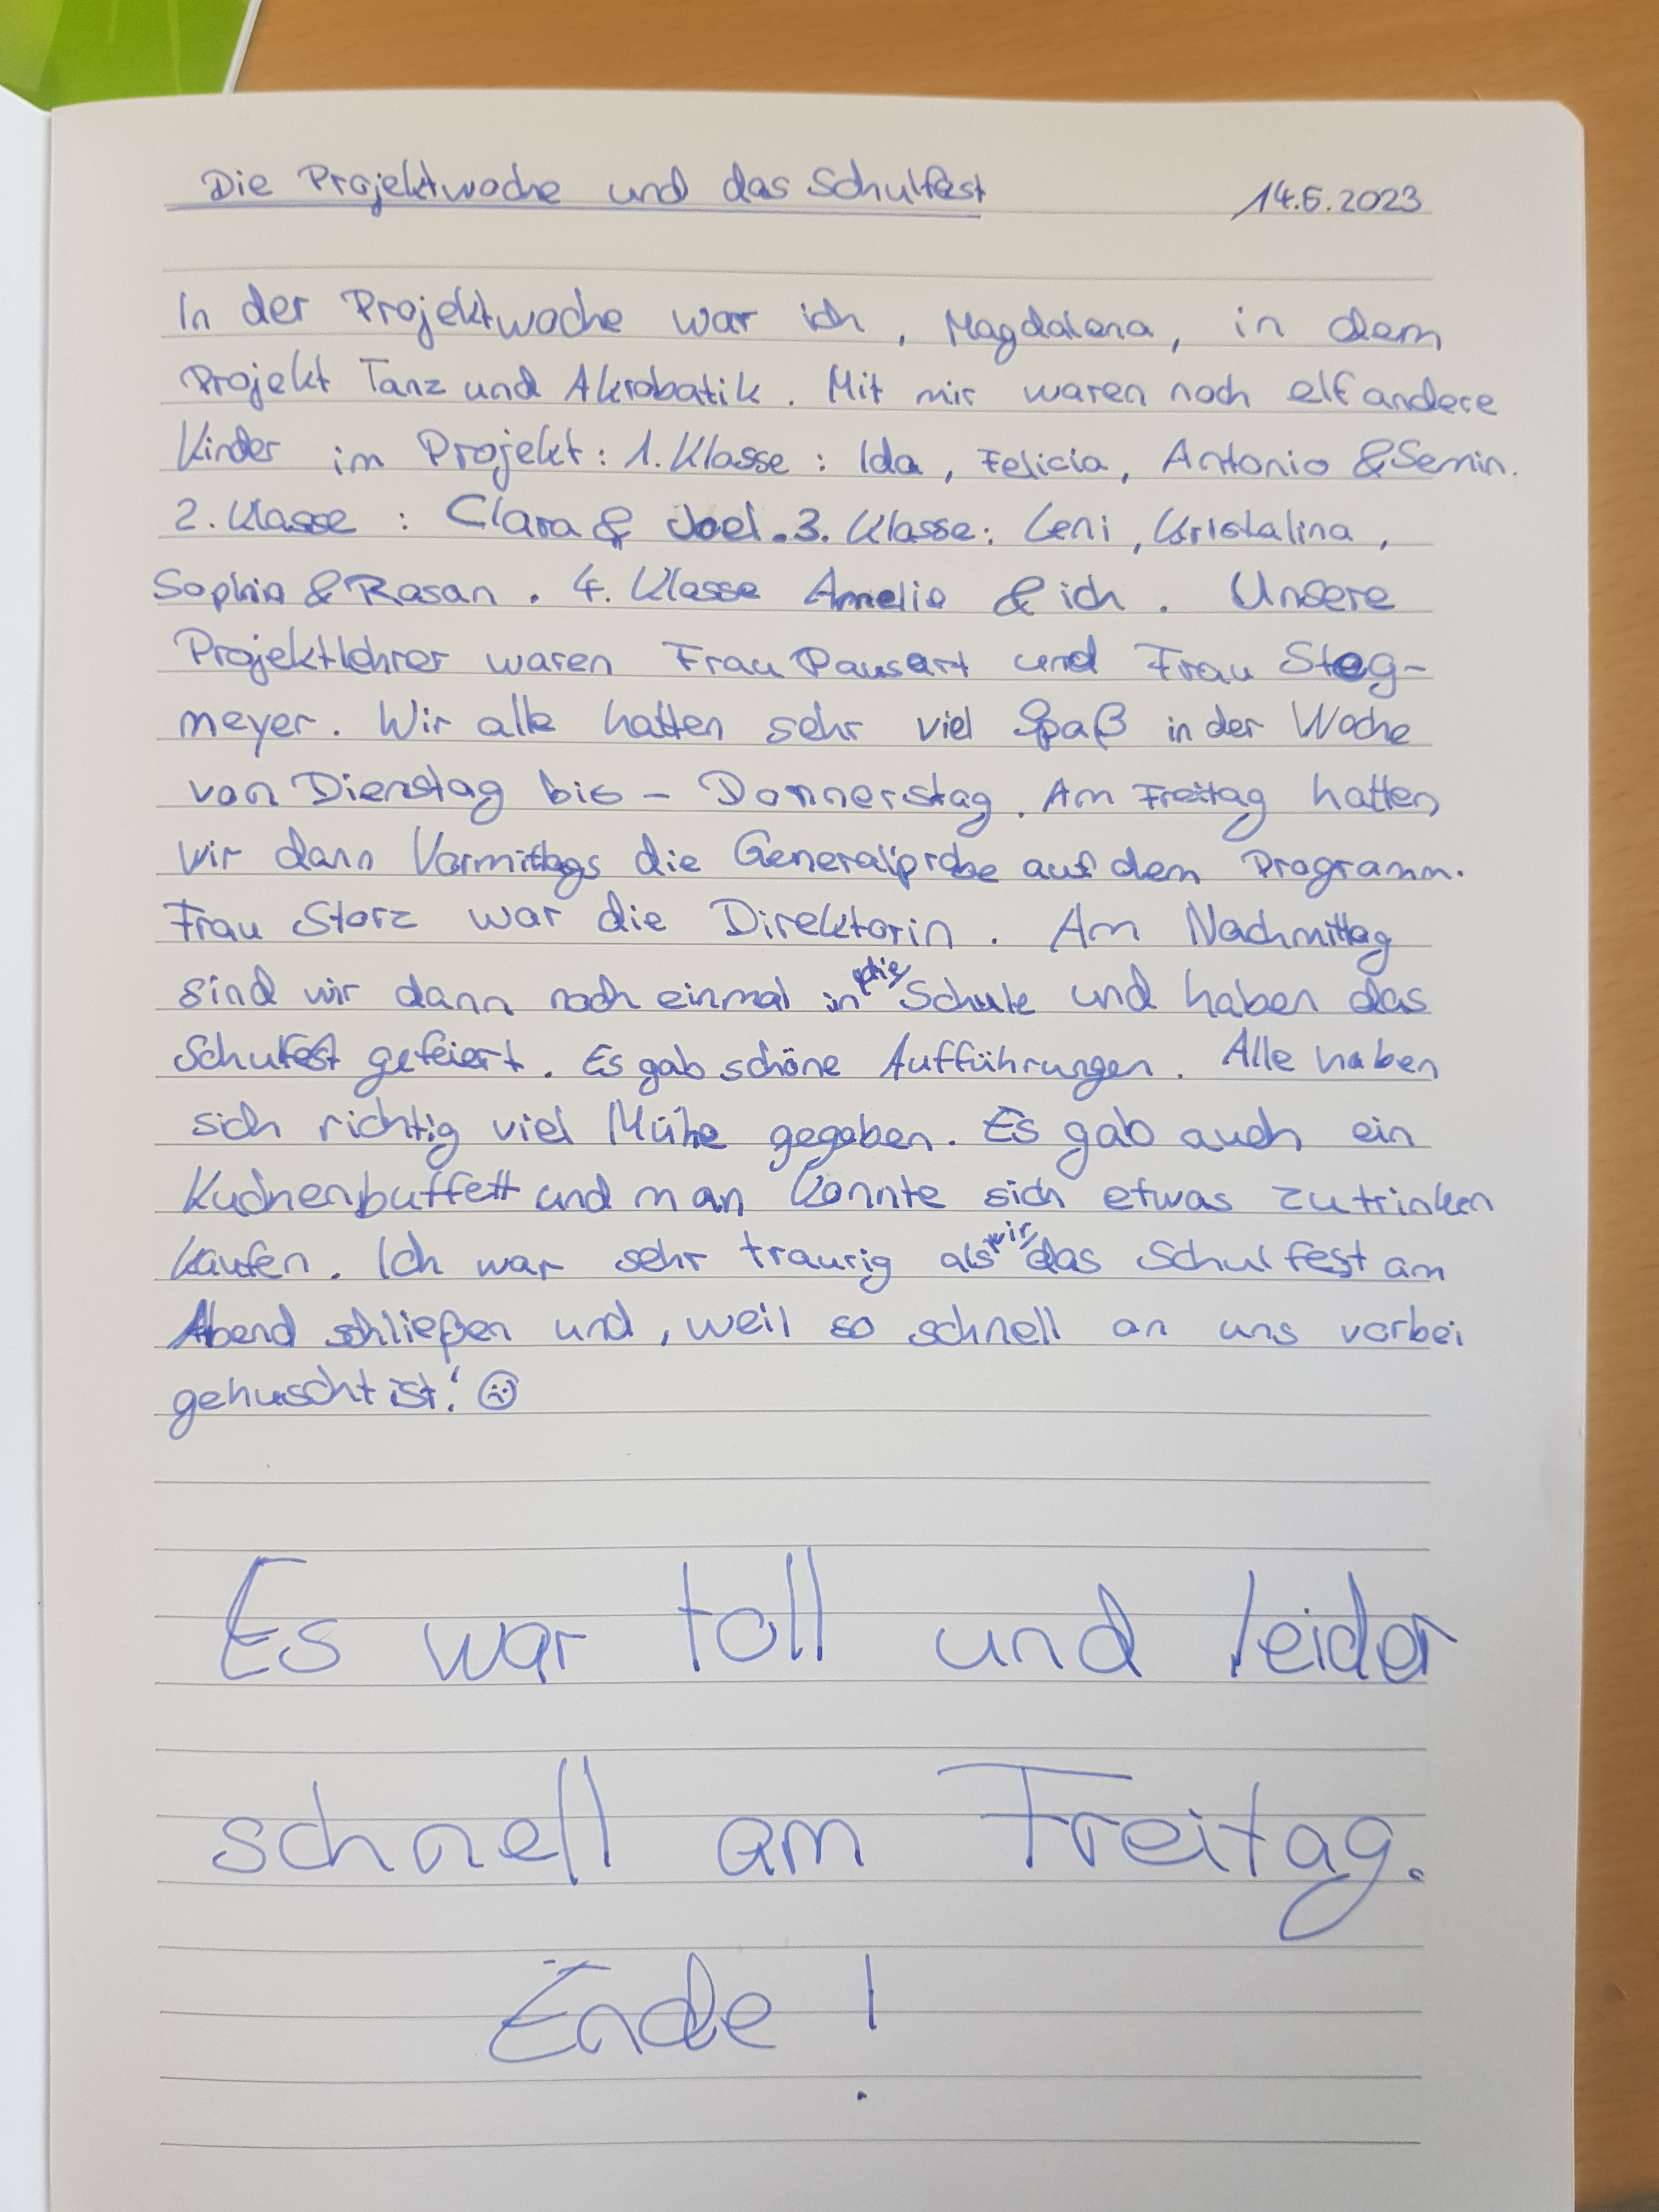 Die Projektwoche und das Schulfest 14.6.2023
In der Projektwoche war ich, Magdalena, in dem
Projekt Tanz und Akrobatik. Mit mir waren noch elf andere
Kinder im Projekt: 1. Klasse: Ida, Felicia, Antonio & Semin.
2. Klasse: Clara & Joel. 3. Klasse: Leni, Kristalina,
Sophia & Rasan. 4. Klasse Amelie & ich. Unsere
Projektlehrer waren Frau Pausart und Frau Steg-
meyer. Wir alle hatten sehr viel Spaß in der Woche
von Dienstag bis - Donnerstag. Am Freitag hatten
wir dann Vormittags die Generalprobe auf dem Programm.
Frau Storz war die Direktorin. Am Nachmittag
sind wir dann noch einmal in die Schule und haben das
Schulfest gefeiert. Es gab schöne Aufführungen. Alle haben
sich richtig viel Mühe gegeben. Es gab auch ein
Kuchenbuffett und man konnte sich etwas zu trinken
kaufen. Ich war sehr traurig als wir das Schulfest am
Abend schließen und, weil so schnell an uns vorbei
gehuscht ist! ☹
Es war toll und leider
schnell am Freitag.
Ende!